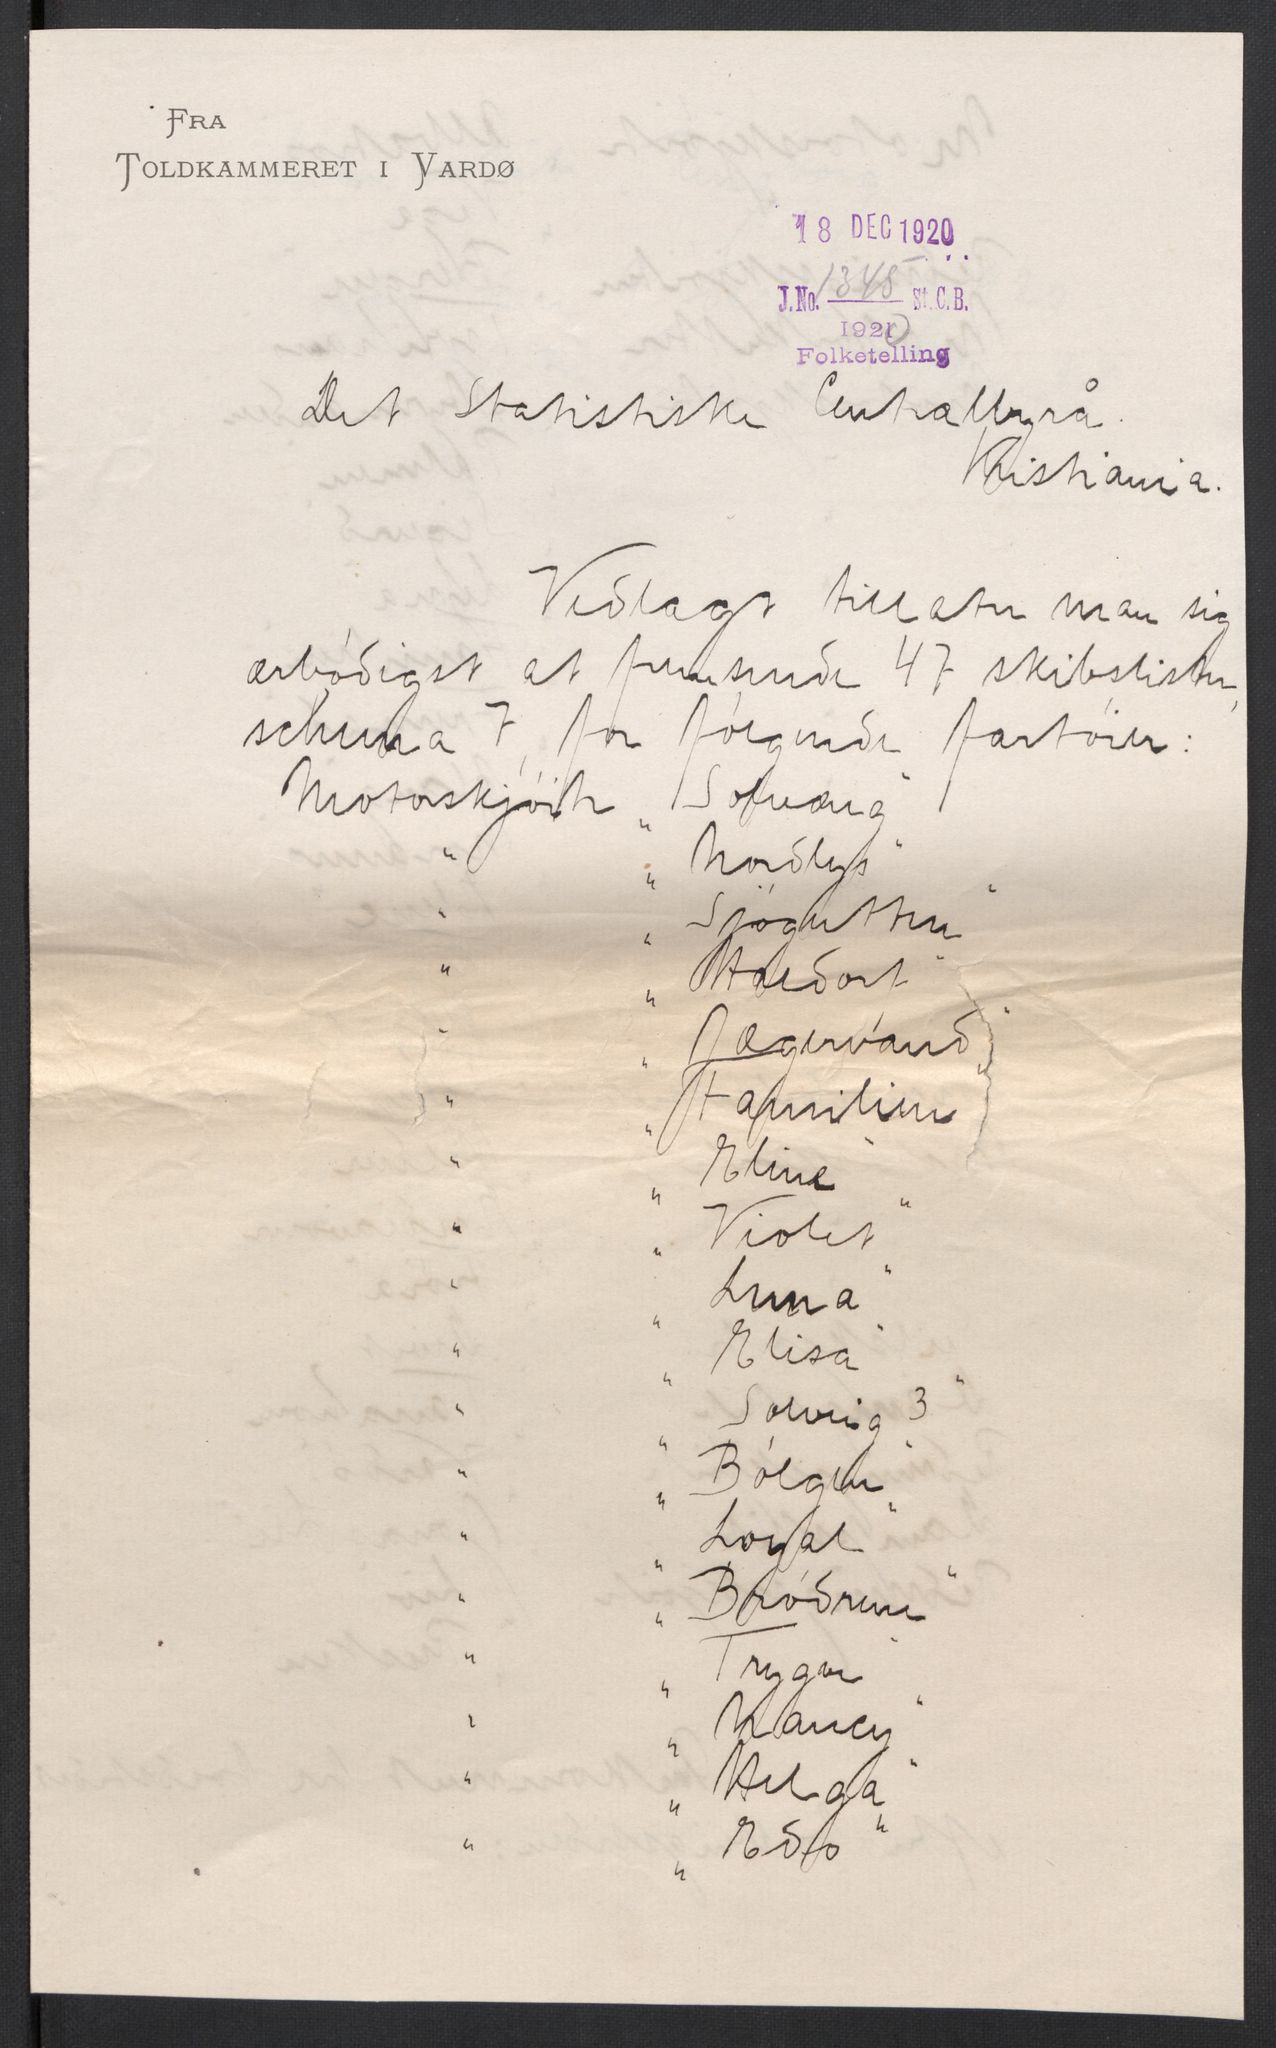 FRA
TOLDKAMMERET I VARDØ
18 DEC 1920
J.No. 1348 St.C.B.
1920
Folketelling
Det Statistiske Centralbyrå.
Kristiania.
Vedlagt tillater man sig
ærbødigst at fremsende 47 skibslister,
schema 7, for følgende fartöier:
Motorskjöite "Solvang"
" "Nordlys"
" "Sjøgutten"
" "
" "Jægervand"
" "Familien"
" "Eline"
" "Violet"
" "Luna"
" "Elisa"
" "Solveig 3"
" "Bølgen"
" "Loyal"
" "Brødrene"
" "Trygve"
" "Nancy"
" "Helga"
" "Edo"